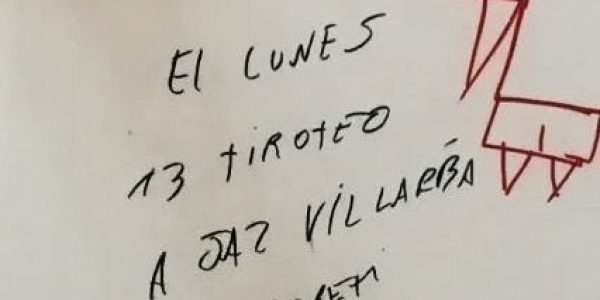 El LUNES
13 tiROTEO
A JAZ VILLARBA